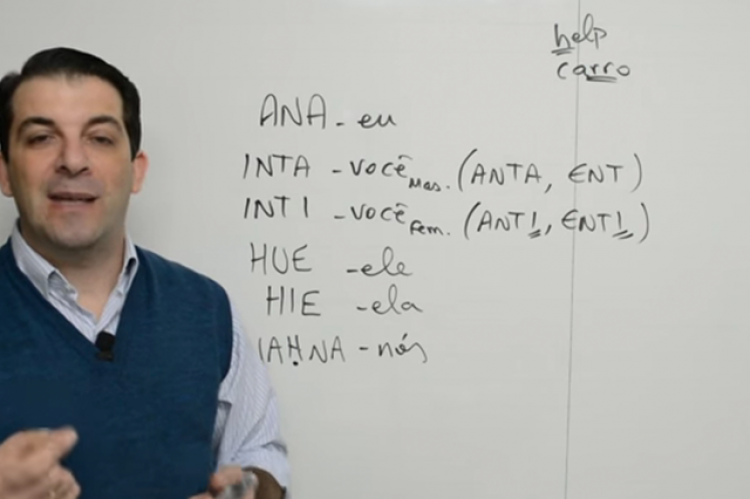 help
carro
ANA - eu
INTA - você Mas. (ANTA, ENT)
INTI - você Fem. (ANTI, ENTI)
HUE - ele
HIE - ela
IAHNA - nós